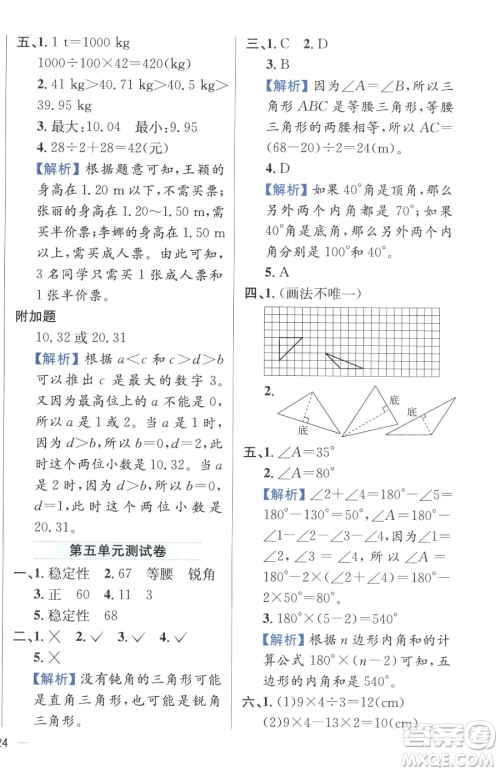 五、1. 1 t=1000 kg
1000÷100×42=420(元)
2. 41 kg>40.71 kg>40.5 kg>
39.95 kg
3. 最大：10.04 最小：9.95
4. 28÷2+28=42(元)
【解析】根据题意可知，王颖
的身高在 1.20 m 以下，不需买票；
张丽的身高在 1.20~1.50 m，
需买半价票；李娜的身高大于
1.50 m，需买成人票。因此，
3 名同学需买 1 张成人票和 1
张半价票。
附加题
10.32 或 20.31
【解析】根据 a<c 和 c>d>b
可以推出 c 是最大的数字 3。
又因为最高位上的 a 不能是 0，
所以 a=1 或 a=2。如果 a=1，
因为 d>b，所以 b=0，d=2，此
时这个两位小数是 10.32。如
果 a=2，因为 d>b，所以 b=0，
d=1，此时这个两位小数是
20.31。
第五单元测试卷
一、1. 稳定性 2. 67 等腰 锐角
3. 正 60 4. 11 3
5. 稳定性 68
二、1. × 2. ✓ 3. ✓ 4. ✓
5. ×
【解析】没有钝角的三角形可能
是直角三角形，也可能是锐角
三角形。
24
三、1. C 2. D
3. B
【解析】因为∠A=∠B，所以三
角形 ABC 是等腰三角形，等腰
三角形的两腰相等，所以 AC=
(68-20)÷2=24(m)。
4. D
【解析】如果 40°角是顶角，那
么另外两个内角都是 70°；如
果 40°角是底角，那么另外两个
内角分别是 40°和 100°。
5. A
四、1. (画法不唯一)
2.
底 底 底
五、1. ∠A=35°
2. ∠A=80°
【解析】∠2+∠4=180°-∠5=
180°-130°=50°，∠A=180°-
∠1-∠2-∠3-∠4=180°-
∠1-∠3-(∠2+∠4)=180°-
20°-30°-50°=80°。
3. 180°×(5-2)=540°
【解析】根据 n 边形内角和的计
算公式 180°×(n-2)可知，
五边形的内角和是 180°×
(5-2)=540°。
六、1. (1)9×4÷3=12(cm)
(2)9×4-13×2=10(cm)